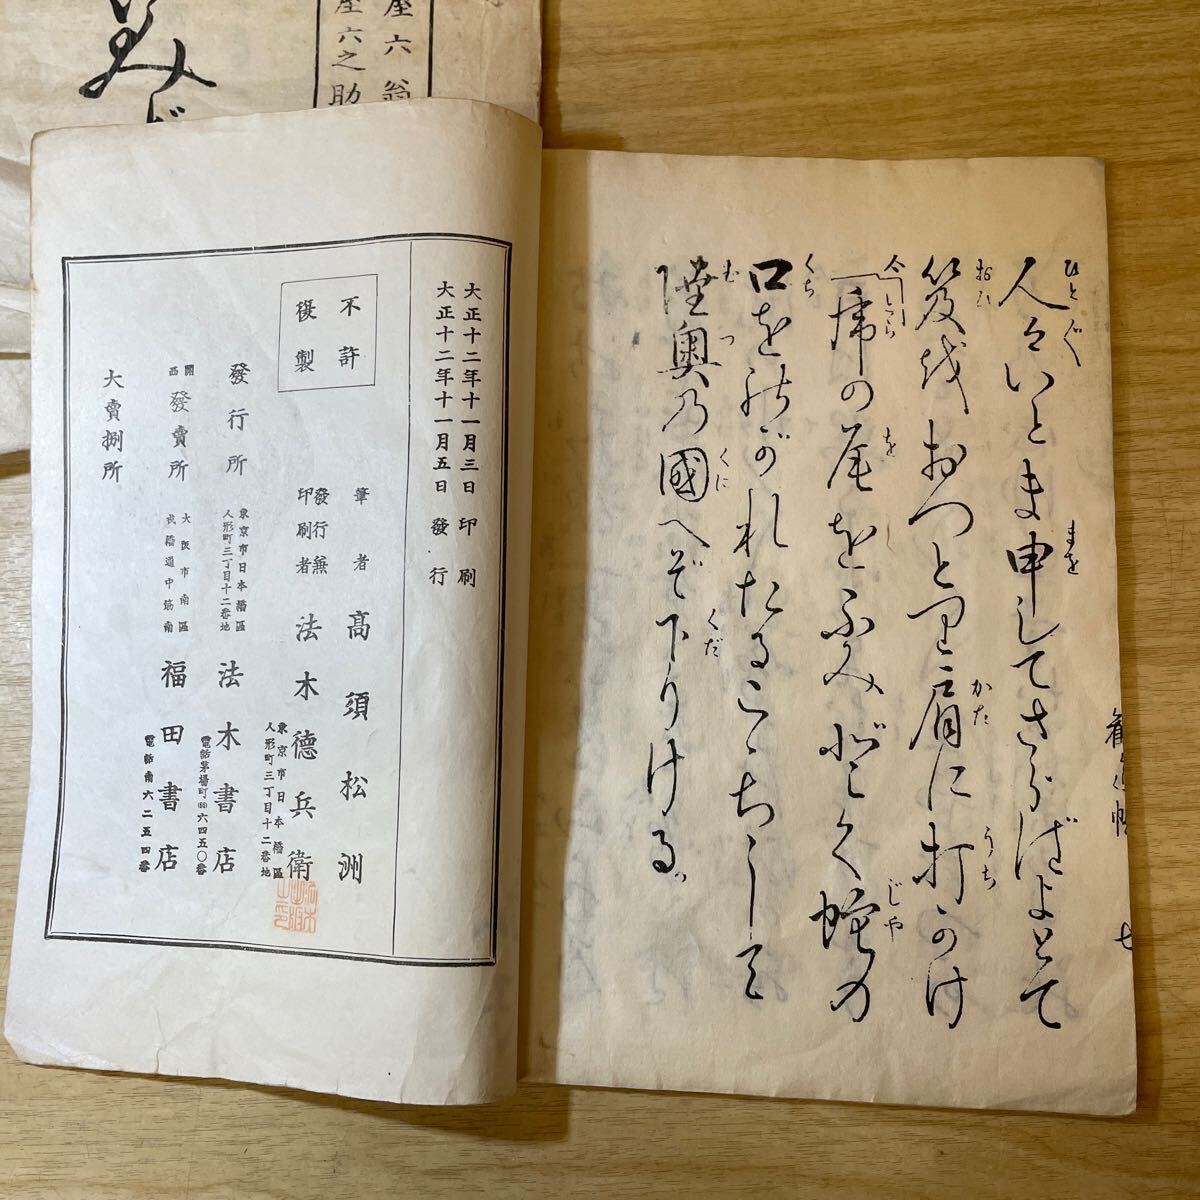 人々いとま申してさらばよとて
ひとぐ
まを
笈をおつとり肩に打かけ
おひ
かた
うち
虎の尾をふみどく蛇の
とら
を
じや
口をのがれたるこゝちして
くち
陸奥の國へぞ下りける
むつ
くに
くだ
勧進帳
七
大正十二年十一月三日印刷
大正十二年十一月五日發行
不許
複製
筆者 高須松洲
發行兼
印刷者 法木德兵衛
東京市日本橋區
人形町三丁目十二番地
發行所 法木書店
東京市日本橋區
人形町三丁目十二番地
電話茅場町六四五〇番
關西
發賣所 福田書店
大阪市南區
戎橋通中筋南
電話南六二五四番
大賣捌所
座六翁
座六之助